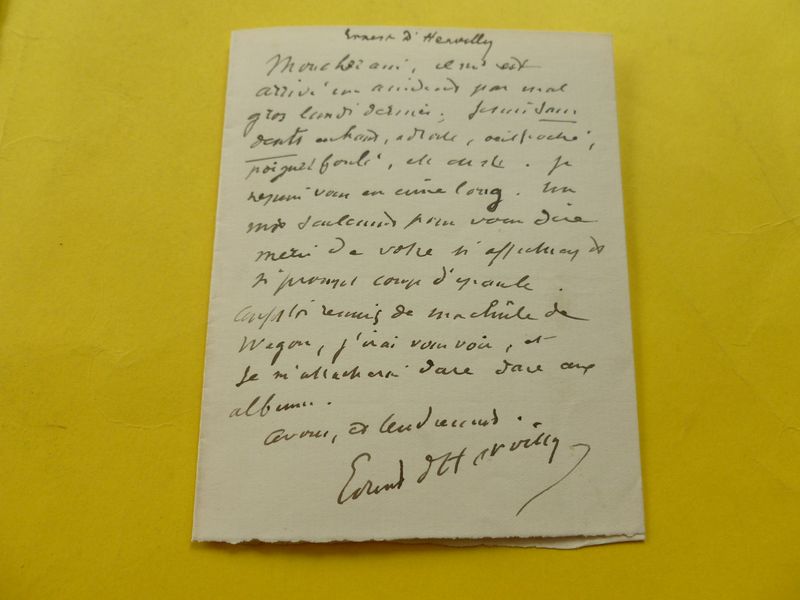 Ernest d'Hervilly
Mon cher ami, il m'est
arrivé un accident pas mal
gros lundi dernier. Je suis sans
dents en haut, œil poché,
poignet foulé, et le reste. Je
vous en long. Un
mot seulement pour vous dire
merci de votre si affectueux et
si prompt coup d'épaule.
Aussitôt remis de ma chûte de
Wagon, j'irai vous voir, et
je m'attacherai dare dare aux
albums.
à vous, et tendrement.
Ernest d'Hervilly